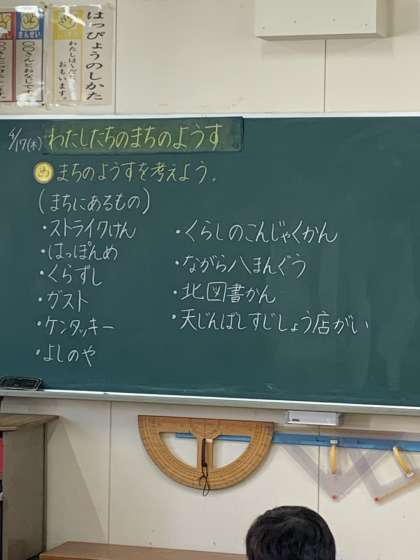 はっぴょうのしかた
さんせい
○○さんとおなじで
わたしは
おもいます。
4/17(木) わたしたちのまちのようす
め まちのようすを考えよう。
(まちにあるもの)
・ストライクけん
・はっぽんめ
・くらずし
・ガスト
・ケンタッキー
・よしのや
・くらしのこんじゃくかん
・ながら八まんぐう
・北図書かん
・天じんばしすじしょう店がい